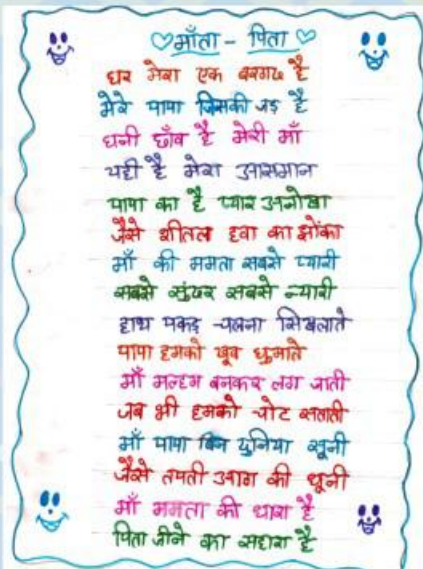 ♡माँता - पिता♡
घर मेरा एक बरगद है
मेरे पापा जिसकी जड़ है
घनी छाँव है मेरी माँ
यही है मेरा आसमान
पापा का है प्यार अनोखा
जैसे शीतल हवा का झोंका
माँ की ममता सबसे प्यारी
सबसे सुंदर सबसे न्यारी
हाथ पकड़ चलना सिखलाते
पापा हमको खूब घुमाते
माँ मल्हम बनकर लग जाती
जब भी हमको चोट सताती
माँ पापा बिन दुनिया सूनी
जैसे तपती आग की धूनी
माँ ममता की धारा है
पिता जीने का सहारा है